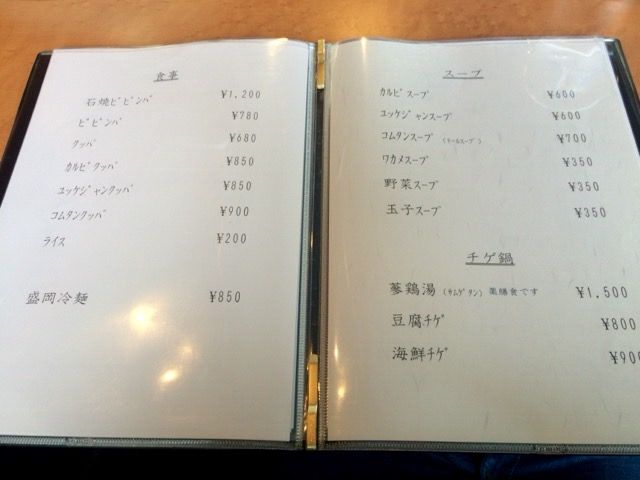 食事
石焼ビビンバ ¥1,200
ビビンバ ¥780
クッパ ¥680
カルビクッパ ¥850
ユッケジャンクッパ ¥850
コムタンクッパ ¥900
ライス ¥200
盛岡冷麺 ¥850
スープ
カルビスープ ¥600
ユッケジャンスープ ¥600
コムタンスープ (テールスープ) ¥700
ワカメスープ ¥350
野菜スープ ¥350
玉子スープ ¥350
チゲ鍋
蔘鶏湯 (サムゲタン) 薬膳食です ¥1,500
豆腐チゲ ¥800
海鮮チゲ ¥900